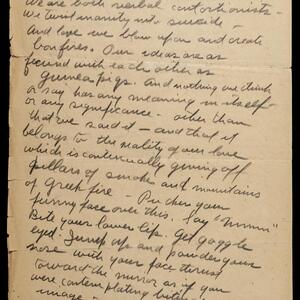 We are both verbal contortionists —
We twist inanity into suicide —
And love we blow upon and create
bonfires. Our ideas are as
fecund with each other as
Guinea pigs. And nothing we think
or say has any meaning in itself
or any significance — other than
that we said it — and that it
belongs to the reality of our love
which is continually giving off
pillars of smoke and mountains
of Greek fire — Pucker your
funny face over this. Say "Mmmm"
Bite your lower lip. Get goggle
eyed. Jump up and powder your
nose with your face turned
toward the mirror as if you
were contemplating
image